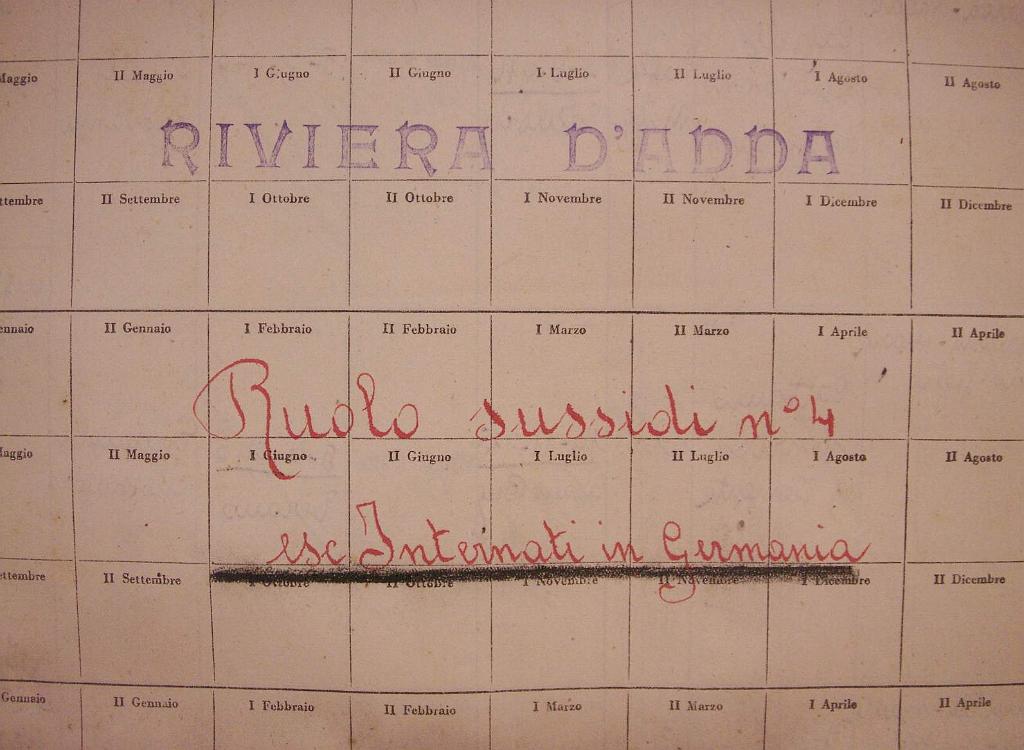 Maggio II Maggio I Giugno II Giugno I Luglio II Luglio I Agosto II Agosto
RIVIERA D'ADDA
II Settembre I Ottobre II Ottobre I Novembre II Novembre I Dicembre II Dicembre
II Gennaio I Febbraio II Febbraio I Marzo II Marzo I Aprile II Aprile
Ruolo sussidi n° 4
II Maggio I Giugno II Giugno I Luglio II Luglio I Agosto II Agosto
esc Internati in Germania
II Settembre I Ottobre II Ottobre I Novembre II Novembre I Dicembre II Dicembre
Gennaio II Gennaio I Febbraio II Febbraio I Marzo II Marzo I Aprile II Aprile